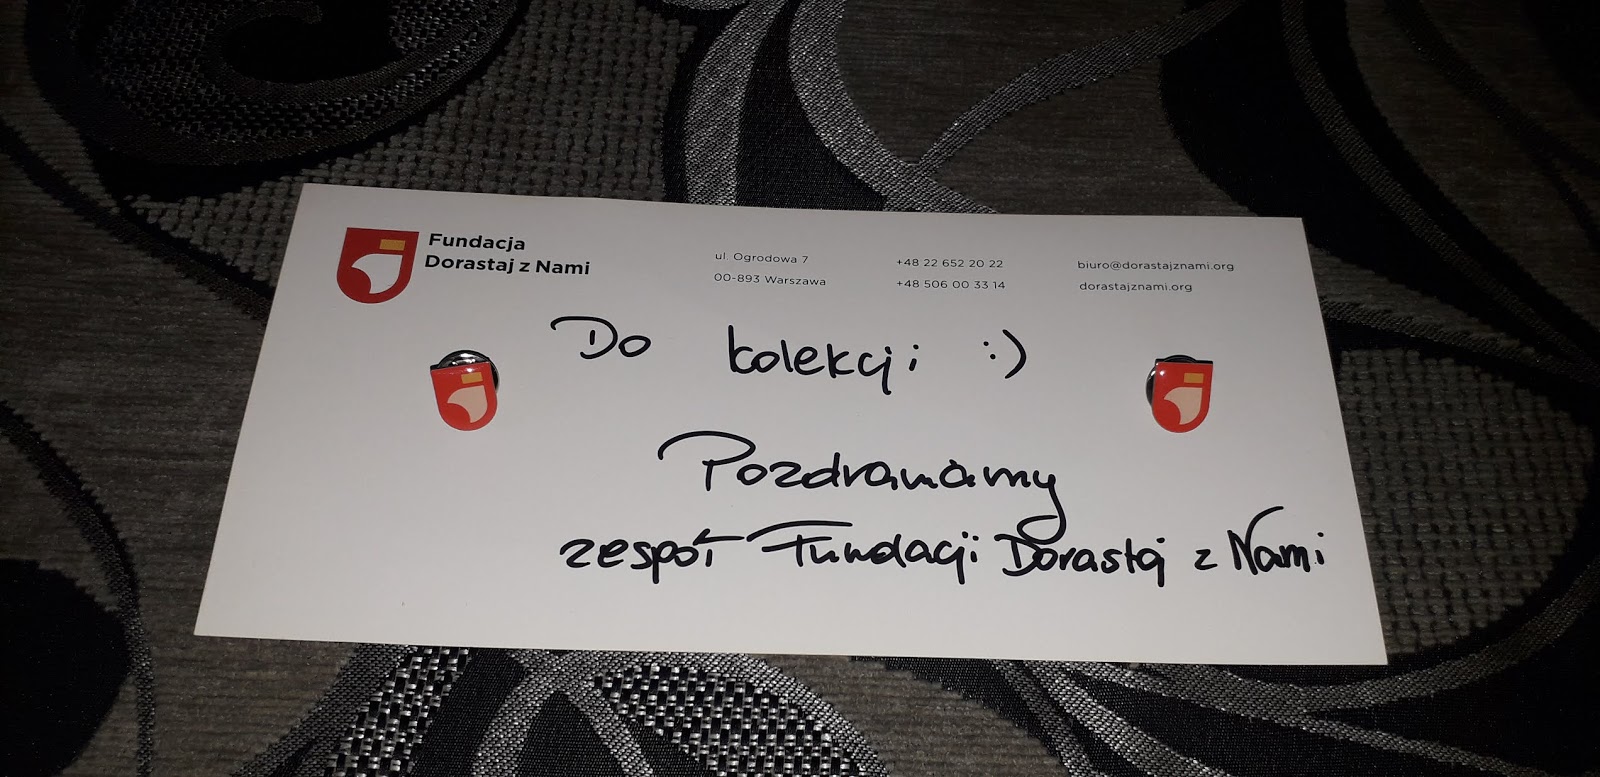 Fundacja
Dorastaj z Nami
ul. Ogrodowa 7
00-893 Warszawa
+48 22 652 20 22
+48 506 00 33 14
biuro@dorastajznami.org
dorastajznami.org
Do kolekcji :)
Pozdrawiamy
zespół Fundacji Dorastaj z Nami